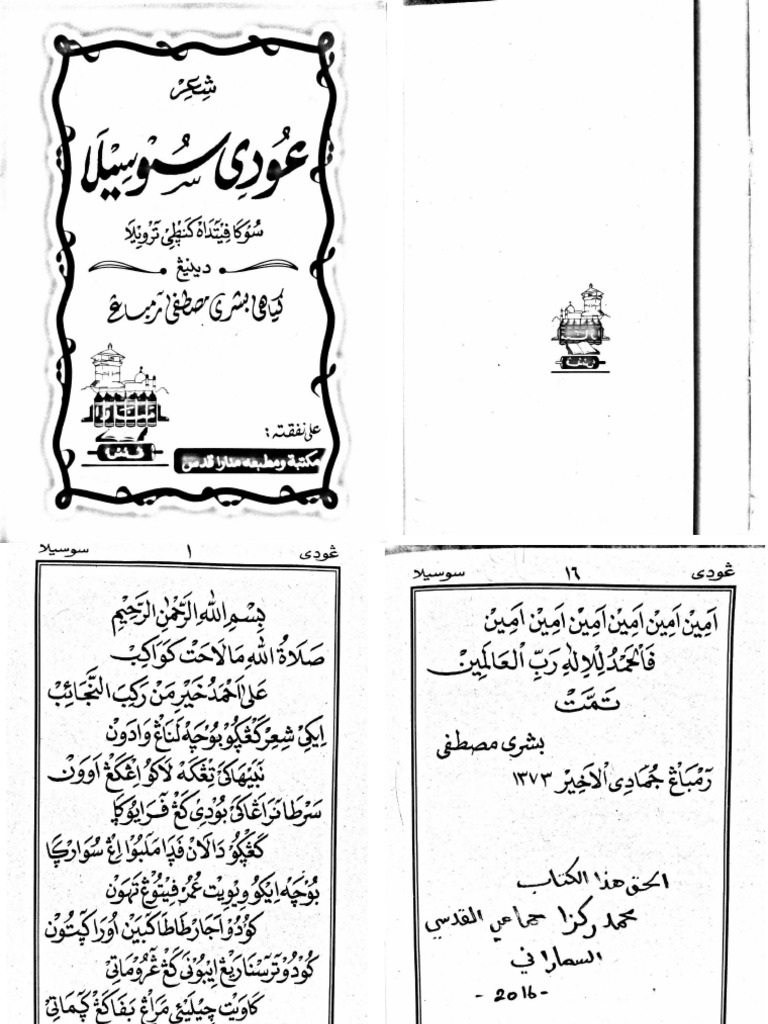 شِعِرْ
عُودِی سُوْسِیْلَا
سُوْكَا فِيْتَدَاهْ كَنْطِيْ تَرْوِيْلَا
دينيڠ
كياهى بشرى مصطفى رمباڠ
على نفقته:
مكتبة ومطبعه منارا قدس
ڠودى ١ سوسيلا
بِسْمِ اللهِ الرَّحْمٰنِ الرَّحِيْمِ
صَلَاةُ اللهِ مَالَاحَتْ كَوَاكِبْ
عَلٰى اَحْمَدْ خَيْرِ مَنْ رَكِبَ النَّجَائِبْ
اِيكِيْ شِعِرْ كَڠْڮَوْ بَوْچَهْ لَنَاڠْ وَادَوْن
نَبَيْهَاكَيْ تِڠْكَهْ لَاكُوْ اِڠْكَڠْ اَوَوْن
سَرْطَا نَرَاڠَاكَيْ بُوْدِيْ كَڠْ فَرَايَوڮَا
كَڠْڮَوْ دَالَان فَدَا مَلَبُوْ اِڠْ سُوَارْڮَا
بَوْچَهْ اِيْكُوْ وِيْوِيْت عُمُرْ فِيْتُوْڠْ تَهَوْن
كُوْدُوْ اَجَارْ طَاطَا كَبَيْن اَوْرَا ڮَيْتَوْن
كُوْدُوْ تَرَسْنَا رِيڠْ اِيْبُوْنَيْ كَڠْ ڠْرُوْمَاتِيْ
كَاوِيْت چِيْلِيْئَيْ مَرَاڠْ بَفَا كَڠْ ڮَمَاتِيْ
ڠودى ١٦ سوسيلا
اٰمِيْن اٰمِيْن اٰمِيْن اٰمِيْن اٰمِيْن اٰمِيْن
فَالْحَمْدُ لِلْاِلٰهِ رَبِّ الْعَالَمِيْن
تَمَّتْ
بشرى مصطفى
رَمْبَاڠْ جُمَادِى الْاَخِيْر ١٣٧٣
الحق هذا الكتاب
محمد
القدسي
في
- 2016 -